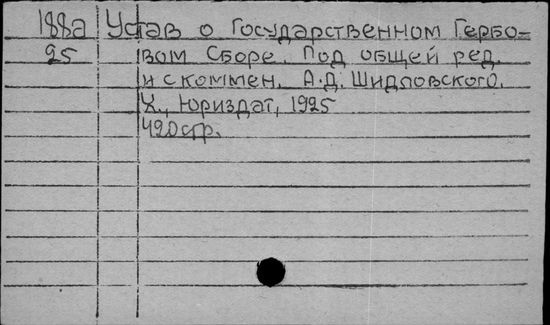 188а Устав о Государственном Гербо-
25 вом Сборе. Под общей ред.
и с коммен. А.Д. Шидловского.
Х., Юриздат, 1925
420 стр.